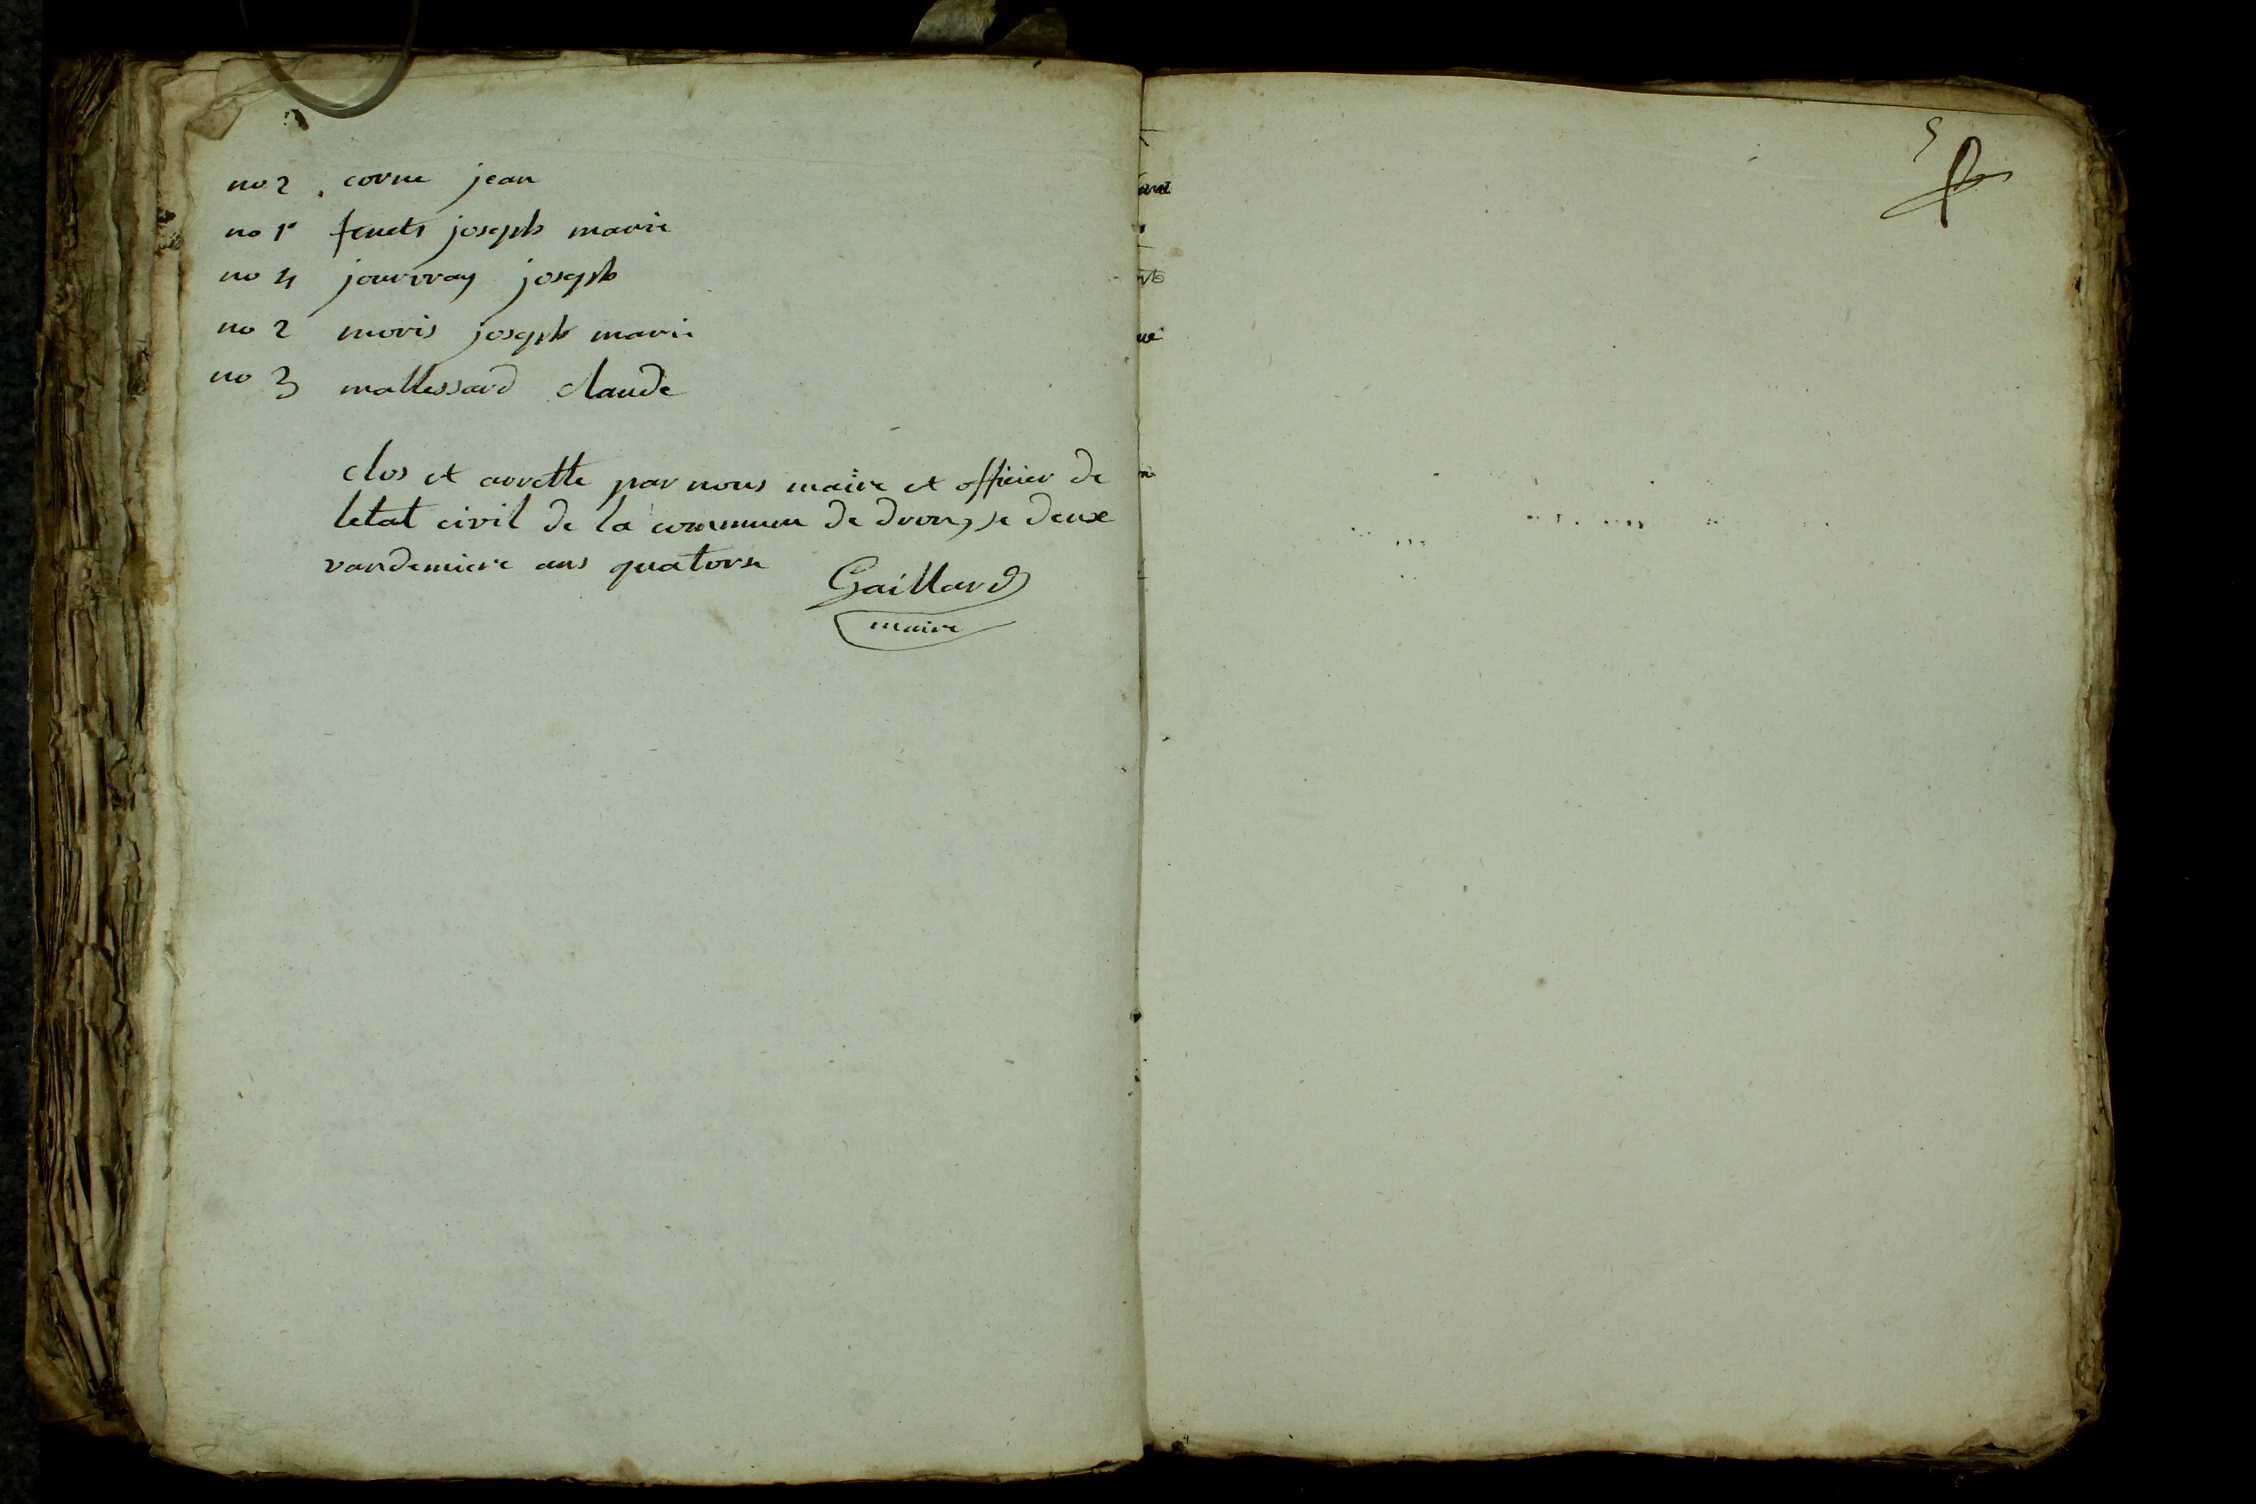 no 2 corne jean
no 1r joseph marie
no 4 jourvray joseph
no 2 moris joseph marie
no 3 mallessard claude
clos et arrette par nous maire et officier de
letat civil de la commune de drom, le deux
vandemiere ans quatorse
Gaillard
maire
5